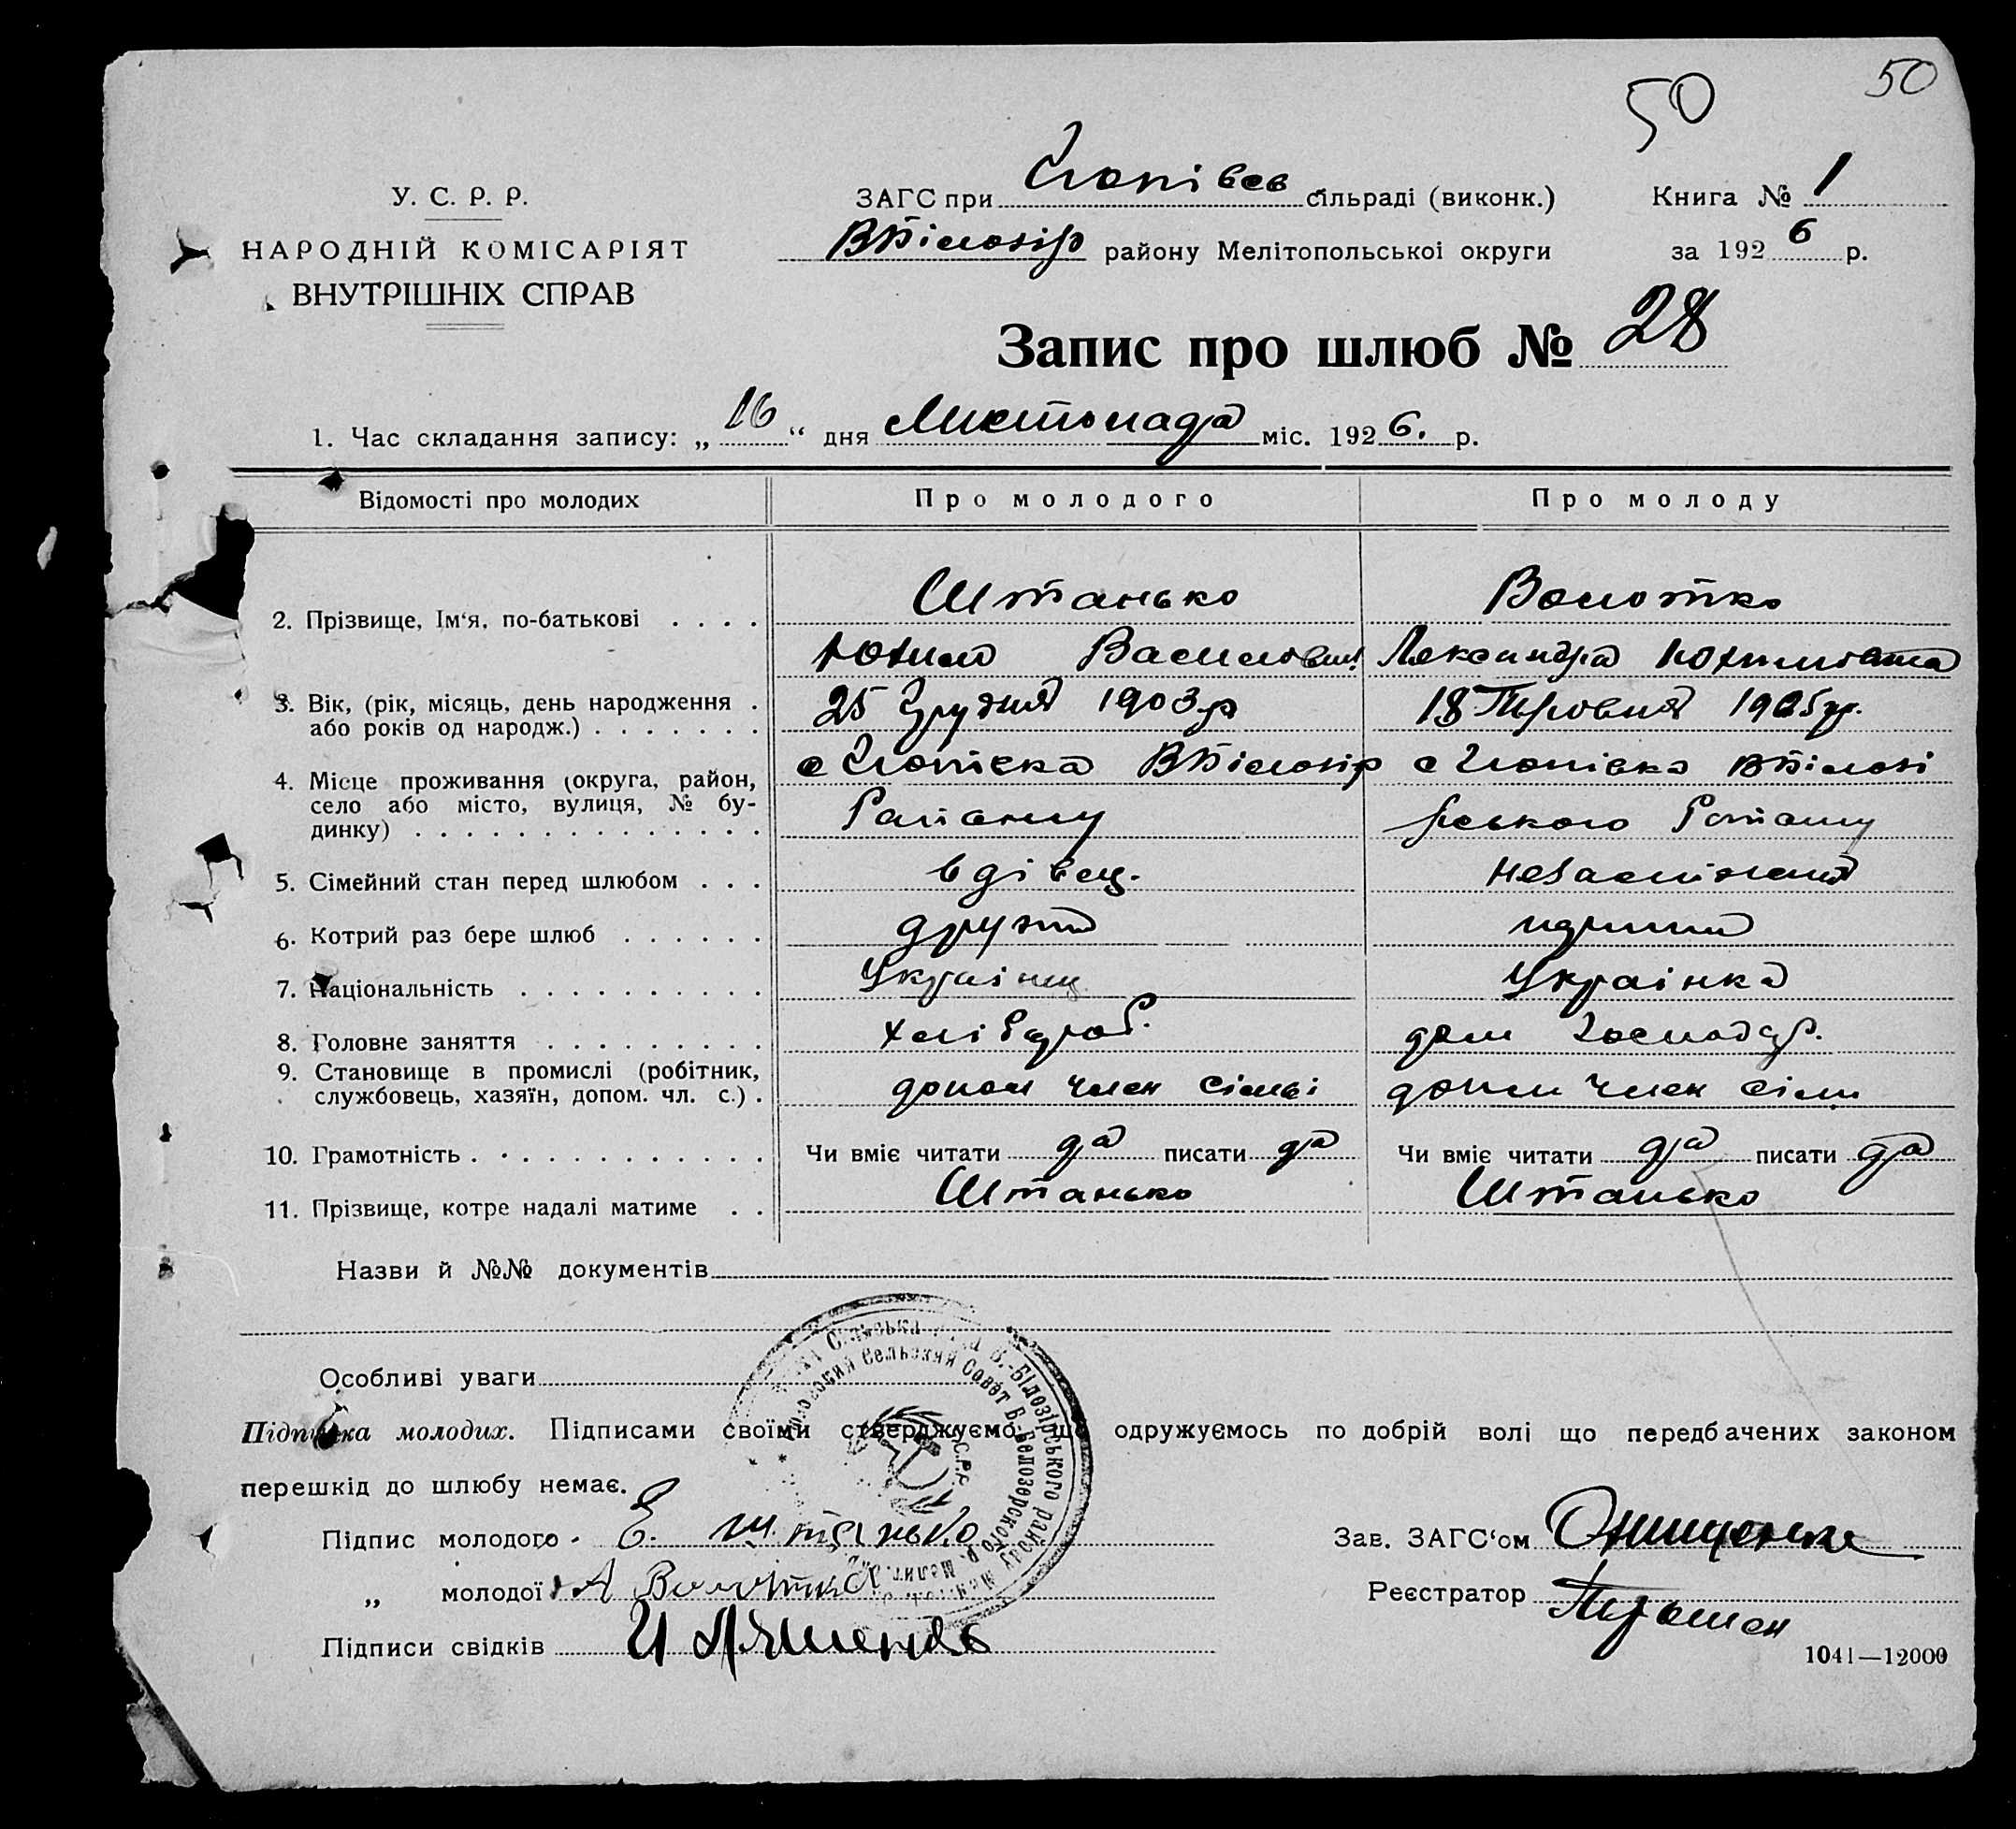 50
50
У. С. Р. Р.
НАРОДНІЙ КОМІСАРІЯТ
ВНУТРІШНІХ СПРАВ
ЗАГС при сільраді (виконк.)
Книга № 1
ВБілозір району Мелітопольської округи
за 1926 р.
Запис про шлюб № 28
1. Час складання запису: „16“ дня Листопада міс. 1926. р.
Відомості про молодих
Про молодого
Про молоду
2. Прізвище, Ім‘я, по-батькові . . . .
Штанько
Волотко
Юхим Василович
Лександра Юхимовна
3. Вік, (рік, місяць, день народження .
або років од народж.) . . . . . . .
25 Грудня 1903р
18 1905р.
4. Місце проживання (округа, район,
село або місто, вулиця, № бу-
динку) . . . . . . . . . . . . . .
с ВБілозір
Району
с ВБілозі
рського Району
5. Сімейний стан перед шлюбом . . .
вдівец.
незаміжня
6. Котрий раз бере шлюб . . . . . .
другий
перший
7. Національність . . . . . . . . . .
Українец
Українка
8. Головне заняття . . . . . . . . .
хлібороб.
дом господар.
9. Становище в промислі (робітник,
службовець, хазяїн, допом. чл. с.) .
допом член сімьі
допом член сімь
10. Грамотність . . . . . . . . . . . .
Чи вміє читати да писати да
Чи вміє читати да писати да
11. Прізвище, котре надалі матиме . .
Штанько
Штанько
Назви й №№ документів
Особливі уваги
Підписка молодих. Підписами своїми стверджуємо, що одружуємось по добрій волі що передбачених законом
перешкід до шлюбу немає.
Підпис молодого Е. Штанько
Зав. ЗАГС‘ом Онищенко
„ молодої А Волотко
Реєстратор
Підписи свідків
1041—12000
Сільська Рада В.-Білозірського району
Сельский Совет В.-Белозерского р.